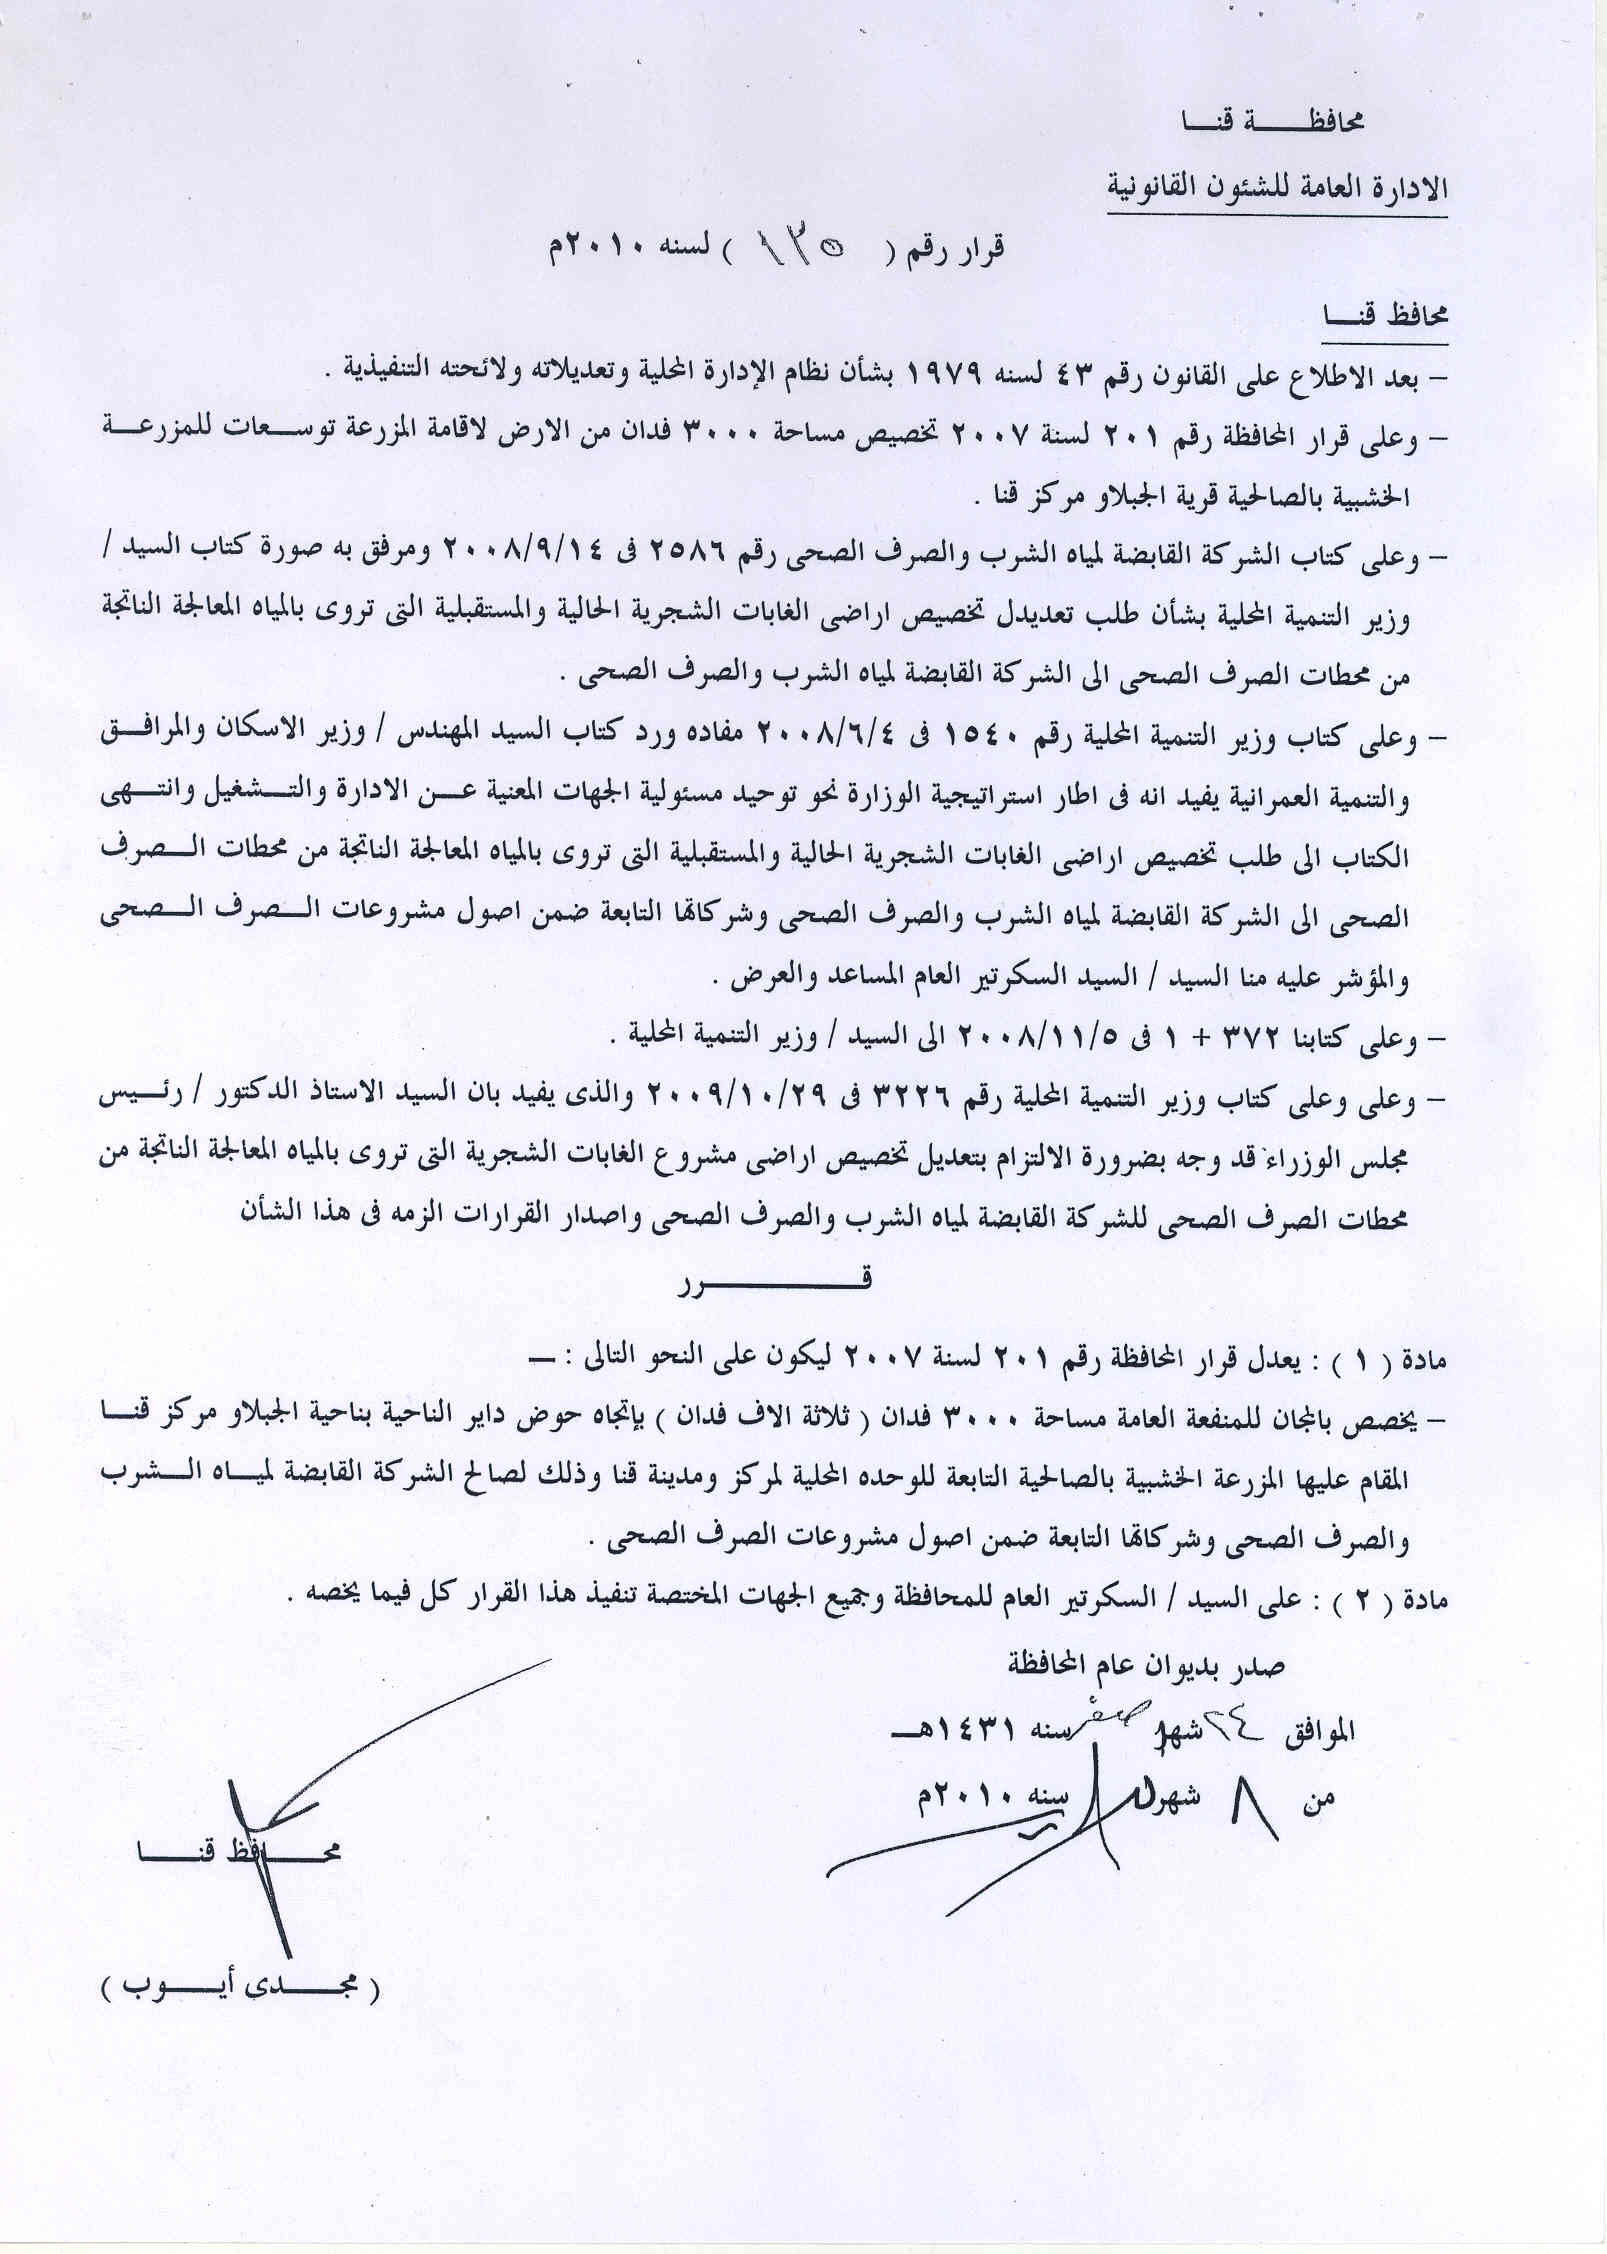 محافظـــــة قنـــا
الادارة العامة للشئون القانونية
قرار رقم ( ١٣٥ ) لسنه ٢٠١٠م
محافظ قنـــا
– بعد الاطلاع على القانون رقم ٤٣ لسنه ١٩٧٩ بشأن نظام الإدارة المحلية وتعديلاته ولائحته التنفيذية .
– وعلى قرار المحافظة رقم ٢٠١ لسنة ٢٠٠٧ تخصيص مساحة ٣٠٠٠ فدان من الارض لاقامة المزرعة توسعات للمزرعة
الخشبية بالصالحية قرية الجبلاو مركز قنا .
– وعلى كتاب الشركة القابضة لمياه الشرب والصرف الصحى رقم ٢٥٨٦ فى ٢٠٠٨/٩/١٤ ومرفق به صورة كتاب السيد /
وزير التنمية المحلية بشأن طلب تعديدل تخصيص اراضى الغابات الشجرية الحالية والمستقبلية التى تروى بالمياه المعالجة الناتجة
من محطات الصرف الصحى الى الشركة القابضة لمياه الشرب والصرف الصحى .
– وعلى كتاب وزير التنمية المحلية رقم ١٥٤٠ فى ٢٠٠٨/٦/٤ مفاده ورد كتاب السيد المهندس / وزير الاسكان والمرافق
والتنمية العمرانية يفيد انه فى اطار استراتيجية الوزارة نحو توحيد مسئولية الجهات المعنية عن الادارة والتشغيل وانتهى
الكتاب الى طلب تخصيص اراضى الغابات الشجرية الحالية والمستقبلية التى تروى بالمياه المعالجة الناتجة من محطات الصرف
الصحى الى الشركة القابضة لمياه الشرب والصرف الصحى وشركاتها التابعة ضمن اصول مشروعات الصرف الصحى
والمؤشر عليه منا السيد / السيد السكرتير العام المساعد والعرض .
– وعلى كتابنا ٣٧٢ + ١ فى ٢٠٠٨/١١/٥ الى السيد / وزير التنمية المحلية .
– وعلى وعلى كتاب وزير التنمية المحلية رقم ٣٢٢٦ فى ٢٠٠٩/١٠/٢٩ والذى يفيد بان السيد الاستاذ الدكتور / رئيس
مجلس الوزراء قد وجه بضرورة الالتزام بتعديل تخصيص اراضى مشروع الغابات الشجرية التى تروى بالمياه المعالجة الناتجة من
محطات الصرف الصحى للشركة القابضة لمياه الشرب والصرف الصحى واصدار القرارات الزمه فى هذا الشأن
قـــــــــــرر
مادة ( ١ ) : يعدل قرار المحافظة رقم ٢٠١ لسنة ٢٠٠٧ ليكون على النحو التالى : ــ
– يخصص بالمجان للمنفعة العامة مساحة ٣٠٠٠ فدان ( ثلاثة الاف فدان ) بإتجاه حوض داير الناحية بناحية الجبلاو مركز قنـــا
المقام عليها المزرعة الخشبية بالصالحية التابعة للوحده المحلية لمركز ومدينة قنا وذلك لصالح الشركة القابضة لمياه الشرب
والصرف الصحى وشركاتها التابعة ضمن اصول مشروعات الصرف الصحى .
مادة ( ٢ ) : على السيد / السكرتير العام للمحافظة وجميع الجهات المختصة تنفيذ هذا القرار كل فيما يخصه .
صدر بديوان عام المحافظة
الموافق ٢٤ شهر صفر سنه ١٤٣١هــ
من ٨ شهر سنه ٢٠١٠م
محـــــافظ قنـــــا
( مجـــــدى أيـــــوب )